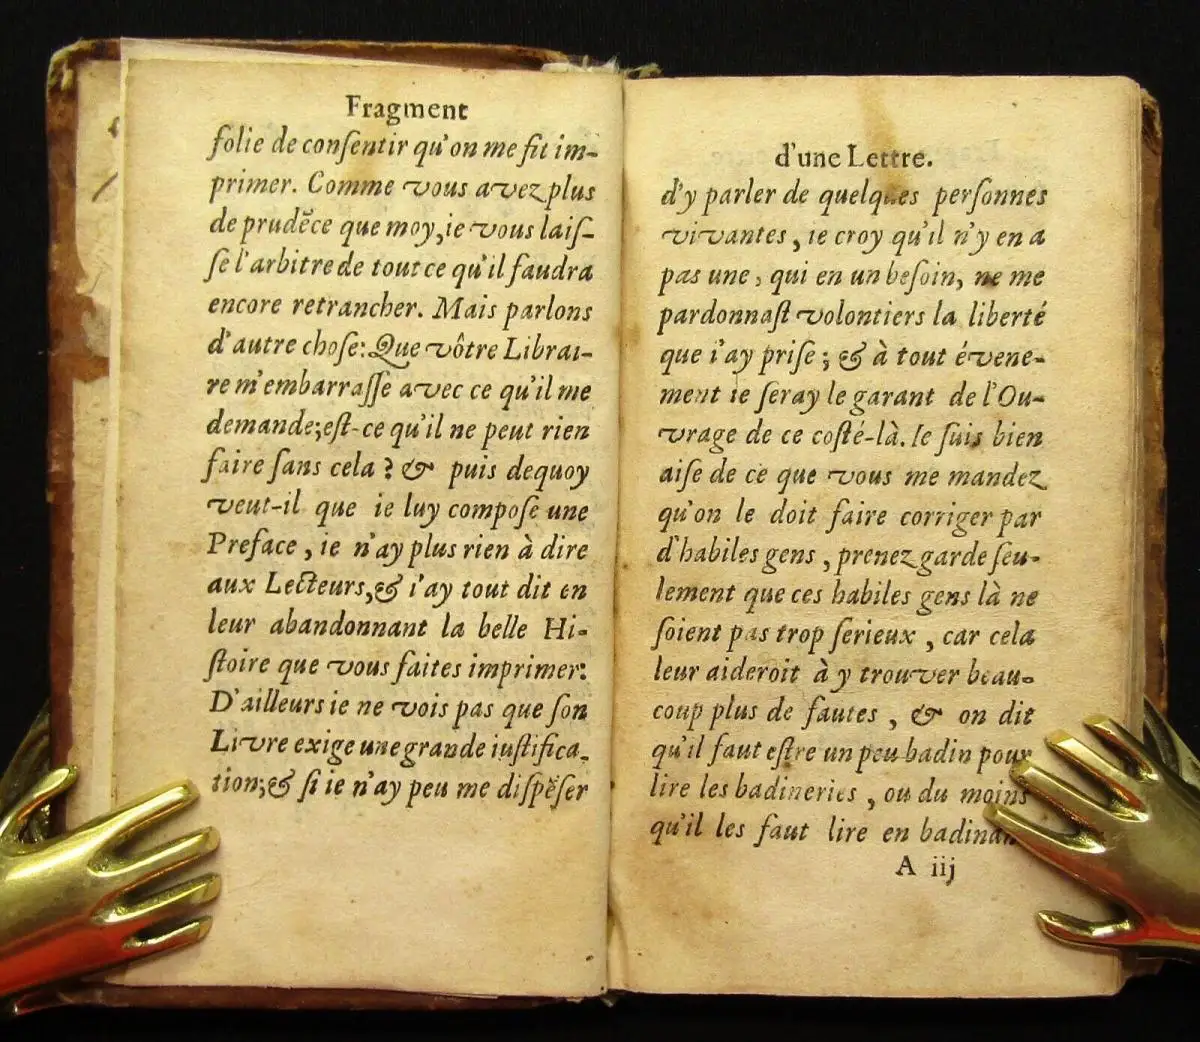 Fragment
folie de conſentir qu'on me fit im-
primer. Comme vous avez plus
de prudẽce que moy, ie vous laiſ-
ſe l'arbitre de tout ce qu'il faudra
encore retrancher. Mais parlons
d'autre choſe: Que vôtre Librai-
re m'embarraſſe avec ce qu'il me
demande; eſt-ce qu'il ne peut rien
faire ſans cela? & puis dequoy
veut-il que ie luy compoſe une
Preface, ie n'ay plus rien à dire
aux Lecteurs, & i'ay tout dit en
leur abandonnant la belle Hi-
ſtoire que vous faites imprimer:
D'ailleurs ie ne vois pas que ſon
Livre exige une grande iuſtifica-
tion; & ſi ie n'ay peu me diſpẽſer
d'une Lettre.
d'y parler de quelques perſonnes
vivantes, ie croy qu'il n'y en a
pas une, qui en un beſoin, ne me
pardonnaſt volontiers la liberté
que i'ay priſe; & à tout évene-
ment ie ſeray le garant de l'Ou-
vrage de ce coſté-là. Ie ſuis bien
aiſe de ce que vous me mandez
qu'on le doit faire corriger par
d'habiles gens, prenez garde ſeu-
lement que ces habiles gens là ne
ſoient pas trop ſerieux, car cela
leur aideroit à y trouver beau-
coup plus de fautes, & on dit
qu'il faut eſtre un peu badin pour
lire les badineries, ou du moins
qu'il les faut lire en
A iij